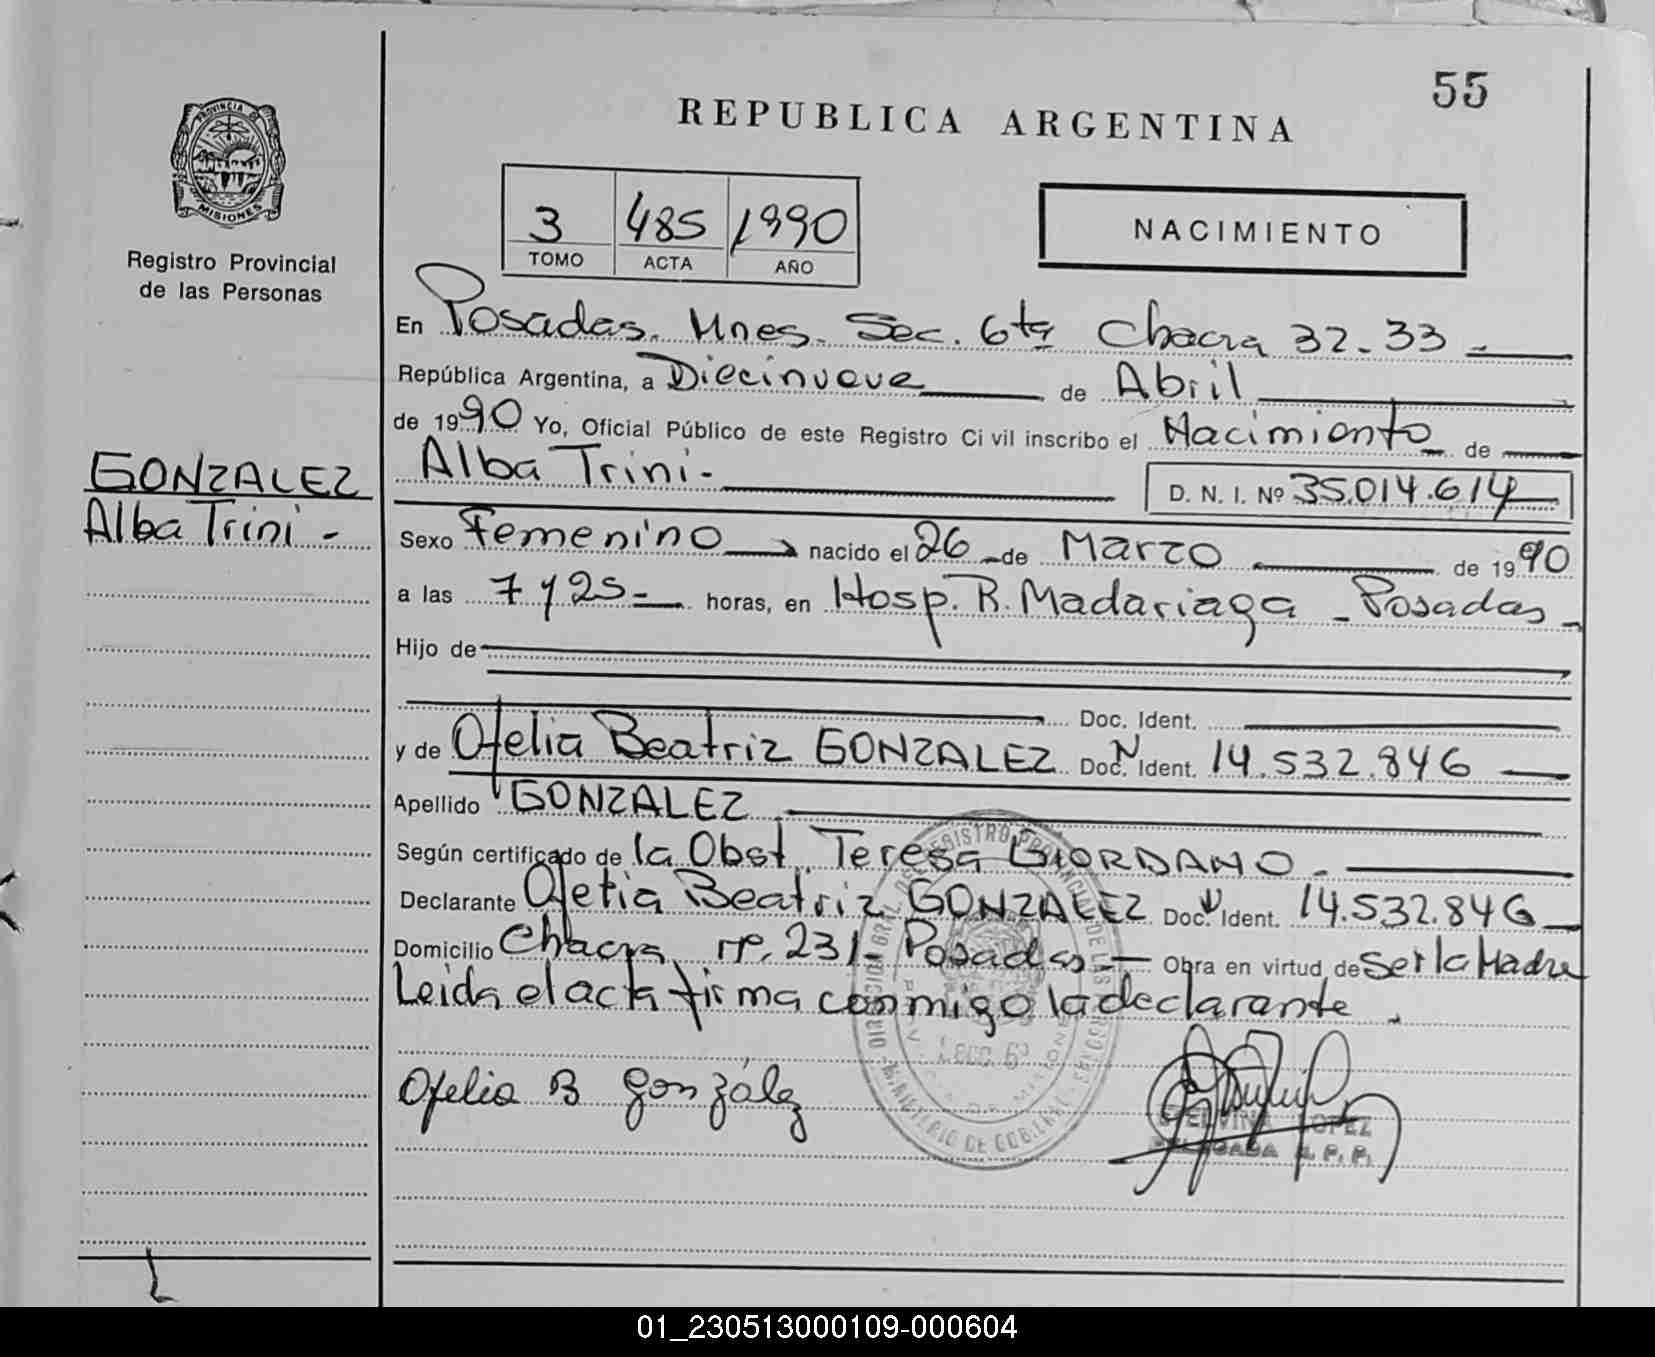 55
REPUBLICA ARGENTINA
PROVINCIA DE
MISIONES
Registro Provincial
de las Personas
3 485 1990
TOMO ACTA AÑO
NACIMIENTO
En Posadas. Mnes. Sec. 6ta Chacra 32-33-
República Argentina, a Diecinueve de Abril
de 1990 Yo, Oficial Público de este Registro Civil inscribo el Nacimiento de
Alba Trini-
D. N. I. Nº 35.014.614
GONZALEZ
Alba Trini-
Sexo Femenino nacido el 26 de Marzo de 1990
a las 7 y 25- horas, en Hosp. R. Madariaga - Posadas -
Hijo de
Doc. Ident.
y de Ofelia Beatriz GONZALEZ Doc. N Ident. 14.532.846
Apellido GONZALEZ
Según certificado de la Obst. Teresa GIORDANO.
Declarante Ofelia Beatriz GONZALEZ Doc. Ident. 14.532.846
Domicilio Chacra nº. 231- Posadas- Obra en virtud de Ser la Madre
Leida el acta firma conmigo la declarante.
Ofelia B González
LOPEZ
01_230513000109-000604